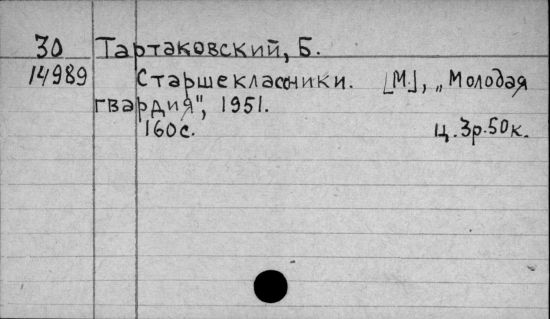 30 Тартаковский, Б.
14989 Старшеклассники. [М.], „Молодая
гвардия", 1951.
160с. Ц. 3р. 50к.